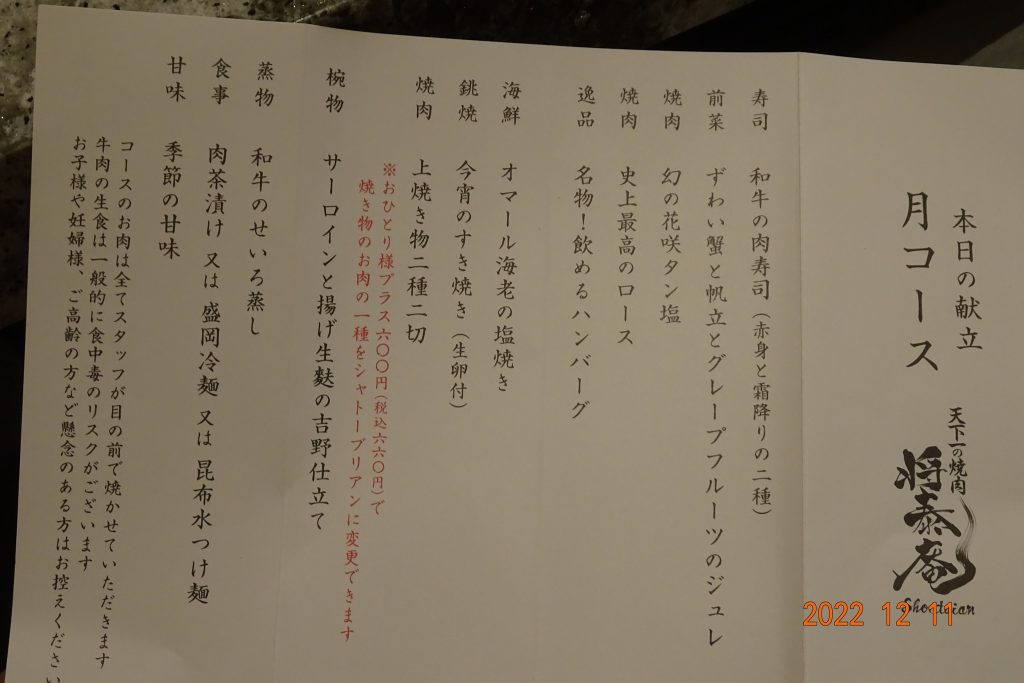 本日の献立
月コース
天下一の焼肉
将泰庵
Shoutaian
寿司 和牛の肉寿司(赤身と霜降りの二種)
前菜 ずわい蟹と帆立とグレープフルーツのジュレ
焼肉 幻の花咲タン塩
焼肉 史上最高のロース
逸品 名物!飲めるハンバーグ
海鮮 オマール海老の塩焼き
銚焼 今宵のすき焼き(生卵付)
焼肉 上焼き物二種二切
※おひとり様プラス六〇〇円(税込六六〇円)で
焼き物のお肉の一種をシャトーブリアンに変更できます
椀物 サーロインと揚げ生麩の吉野仕立て
蒸物 和牛のせいろ蒸し
食事 肉茶漬け 又は 盛岡冷麺 又は 昆布水つけ麺
甘味 季節の甘味
コースのお肉は全てスタッフが目の前で焼かせていただきます
牛肉の生食は一般的に食中毒のリスクがございます
お子様や妊婦様、ご高齢の方など懸念のある方はお控えください
2022 12 11